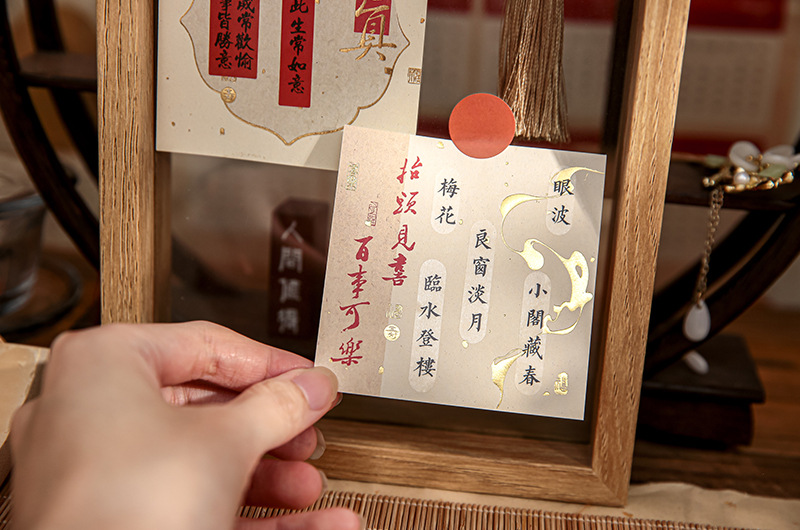 常歡愉
事皆勝意
此生常如意
真
眼波
小閣藏春
良窗淡月
梅花
臨水登樓
抬頭見喜
百事可樂
人間值得